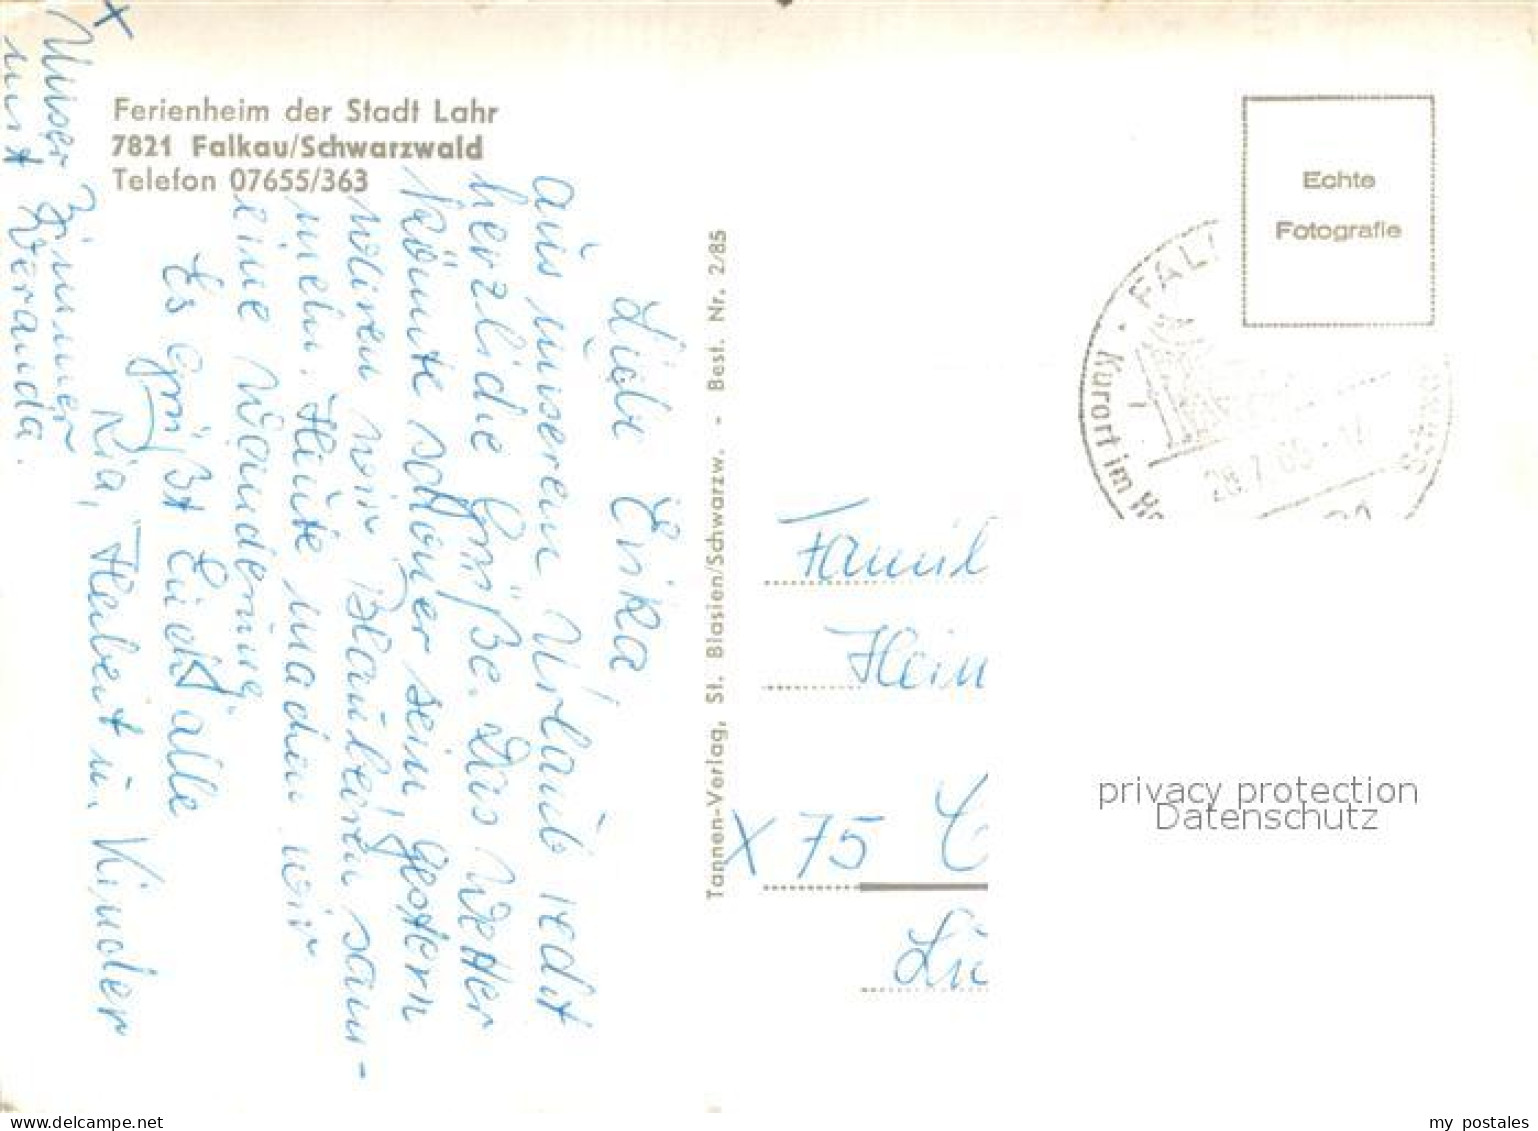 Ferienheim der Stadt Lahr
7821 Falkau/Schwarzwald
Telefon 07655/363
Liebe Erika,
aus unserem Urlaub recht
herzliche Grüße. Das Wetter
könnte schöner sein, gestern
waren wir Blaubeeren sam-
meln. Heute machen wir
eine Wanderung.
Es grüßt Euch alle
Ria, Herbert u. Kinder
X
Unser Zimmer
mit Veranda.
Tannen-Verlag, St. Blasien/Schwarzw. - Best. Nr. 2/85
Echte
Fotografie
FAL
Kurort im Ho
Famil
Hein
X 75
privacy protection
Datenschutz
my postales